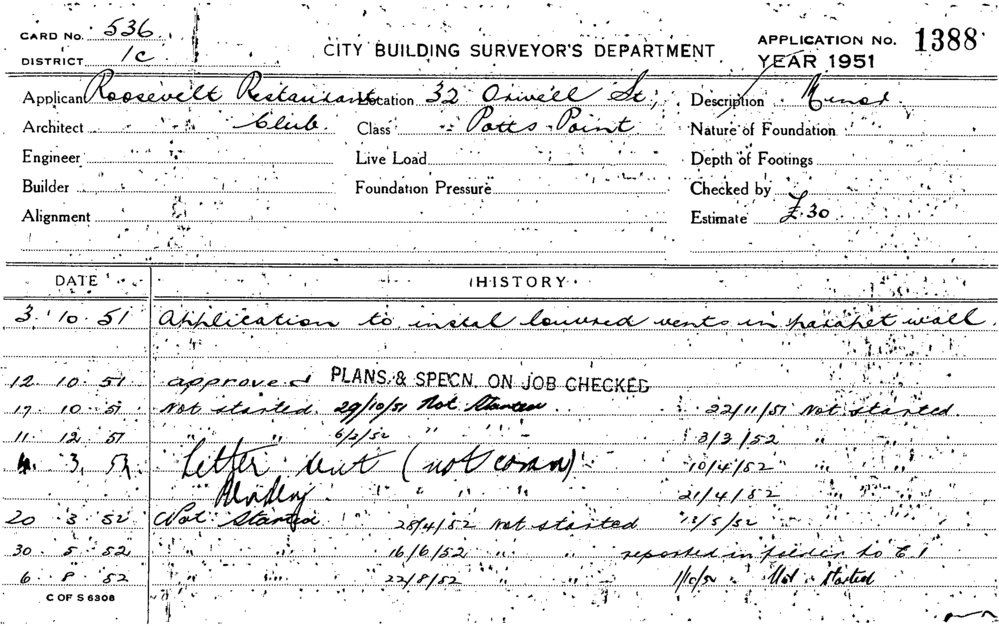 CARD No. 536
DISTRICT 1C
CITY BUILDING SURVEYOR'S DEPARTMENT
APPLICATION No. 1388
YEAR 1951
Applicant Roosevelt Restaurant Location 32 Orwell St, Description Minor
Architect Club. Class Potts Point Nature of Foundation
Engineer Live Load Depth of Footings
Builder Foundation Pressure Checked by
Alignment Estimate £30
DATE HISTORY
3. 10. 51 Application to instal louvred vents in parapet wall.
12. 10. 51 approved PLANS. & SPECN. ON JOB CHECKED
17 10. 51 Not started. 29/10/51 Not Started 22/11/51 Not started.
11. 12. 51 " " 6/2/52 " " 3/3/52 " "
4. 3. 52 Letter sent (not comm) 10/4/52 " "
" " 21/4/52 "
20 3 52 Not Started 28/4/52 Not started 13/5/52 " "
30. 5. 52 " " 16/6/52 " " reported in folder to C I
6. 8. 52 " " 22/8/52 " " 1/10/52 Not Started
C OF S 6308